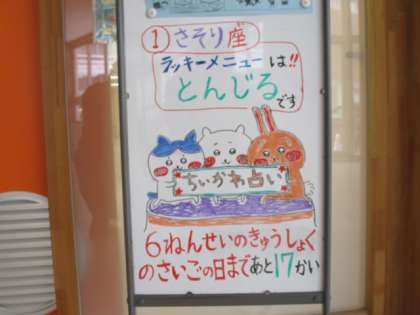 ① さそり座
ラッキーメニューは!!
とんじるです
ちいかわ占い
6ねんせいのきゅうしょく
のさいごの日まであと17かい